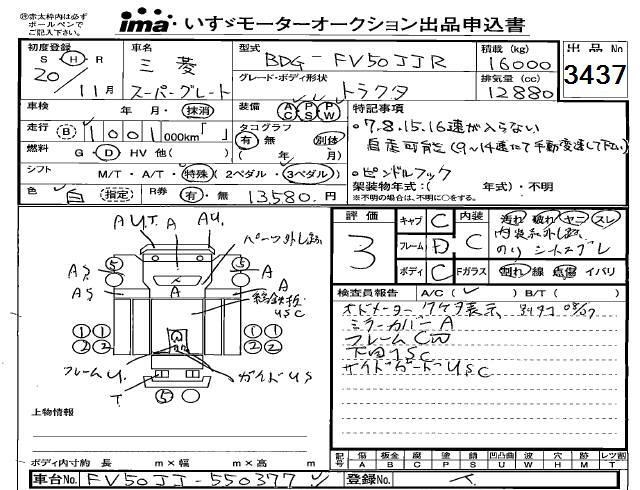 ㊟赤太枠内は必ず
ボールペンで
ご記入下さい。
ima いすゞモーターオークション出品申込書
初度登録 車名 型式 積載 (kg) 出品No
S・H・R 三菱 BDG-FV50JJR 16000 3437
20/11月 スーパーグレート グレード・ボディ形状 トラクタ 排気量 (cc) 12880
車検 年・月・抹消 装備 AC PS PW 特記事項
走行 B 1001,000km「 」 タコグラフ 有 無 別体 ・7.8.15.16速が入らない
燃料 G・D・HV 他( ) ( 年/ 月) 自走可能(9~14速にて手動変速して下さい)
シフト M/T・A/T・特殊 (2ペダル・3ペダル) ・ピンドルフック
色 白 指定 R券 有・無 13,580.円 架装物年式:( 年式)・不明
※不明の場合は、不明に○をする。
評価 3 キャブ C 内装 C 汚れ 破れ ヤニ スレ
フレーム D 内装材外し跡
のり シートズレ
ボディ C Fガラス 割れ 線 点傷 イバリ
検査員報告 A/C( ) B/T( )
オドメーター 1ケタ表示,
ミラーカバー A
フレーム CW
下回りSC
サイドガード USC
AUT. A AU.
パーツ外し跡
5 5
AS A A A
AS A
縞鉄板
USC
1 1 1 1
2 2 2 2
W
フレームU. ガイドUS
T
5
上物情報
ボディ内寸約 長 m×幅 m×高 m
記号 傷 A 板金 B 腐 C 塗 P 錆 S 凹凸曲 U 波 W 穴 H 跡 M レツ割 T
車台No. FV50JJ-550377 登録No.